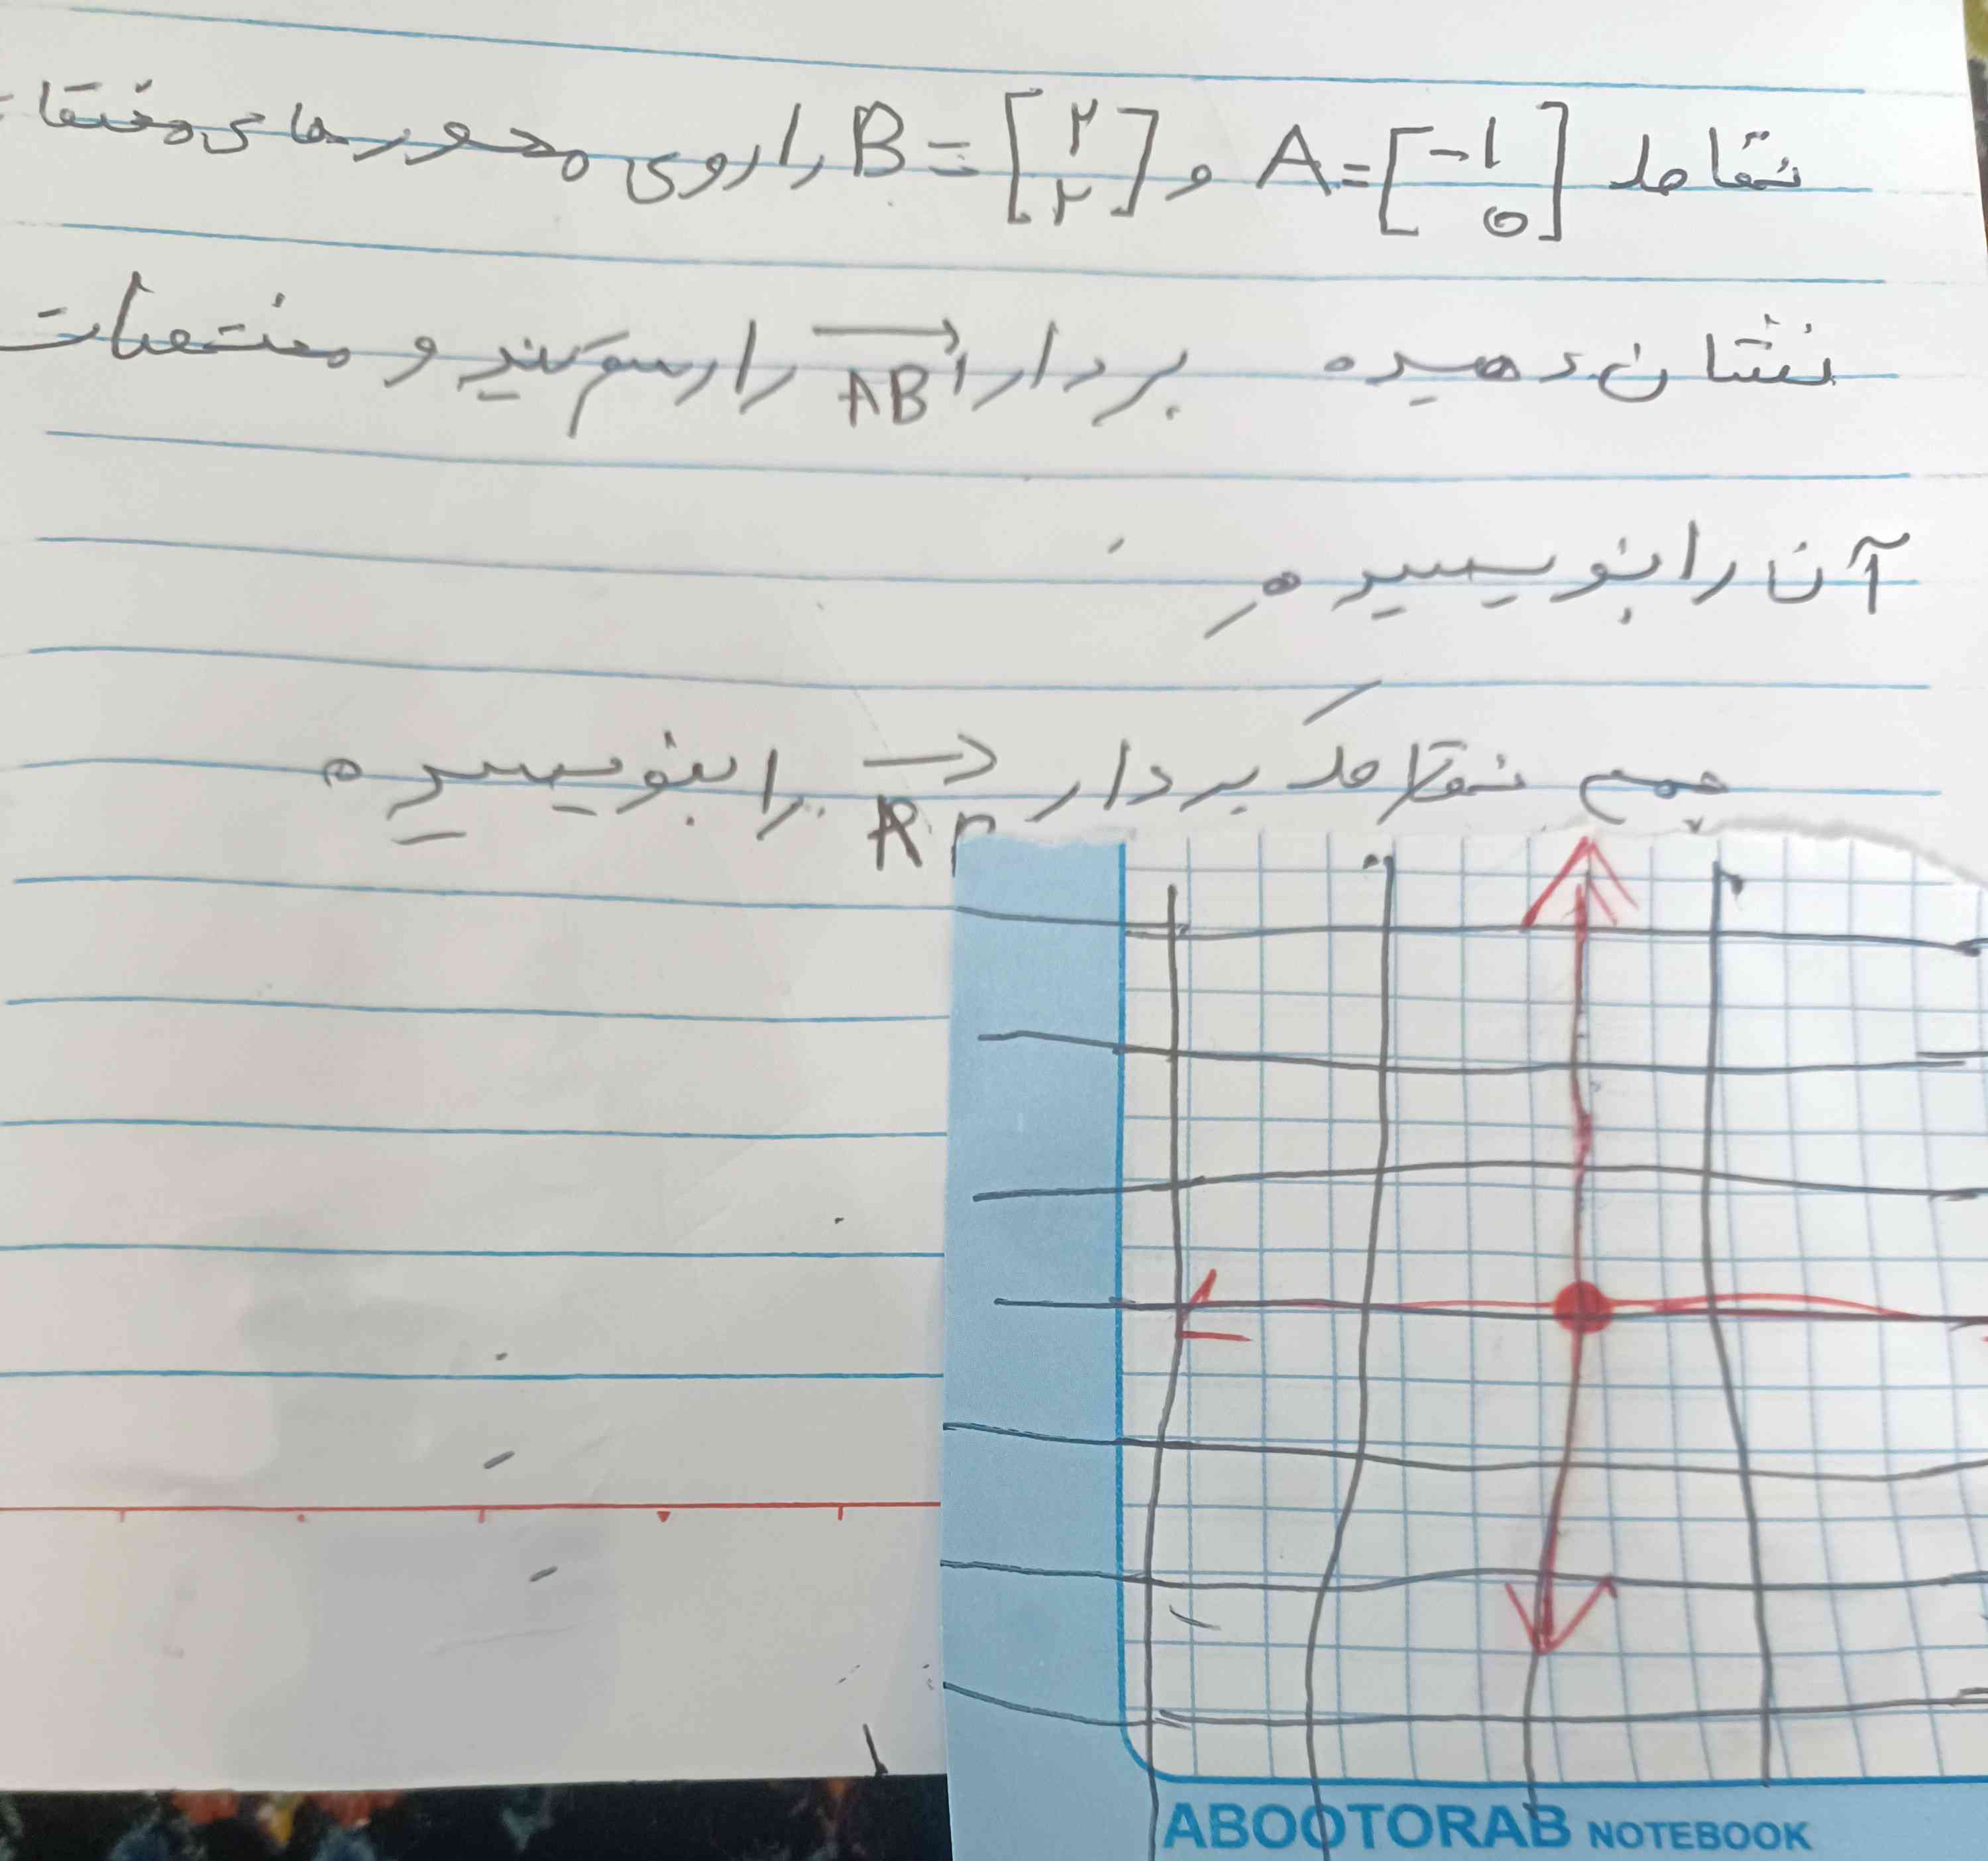 نقاط A = [-۱ ۰] و B = [۲ ۲] را روی محورهای مختصا
نشان دهیده بردار AB را رسم کنید و مختصات
آن را بنویسید
جمع نقاط بردار را بنویسیده
ABOOTORAB NOTEBOOK